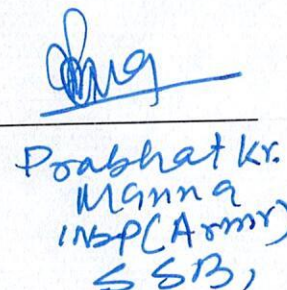 Prabhat Kr.
Manna
INSP(Armr)
SSB,